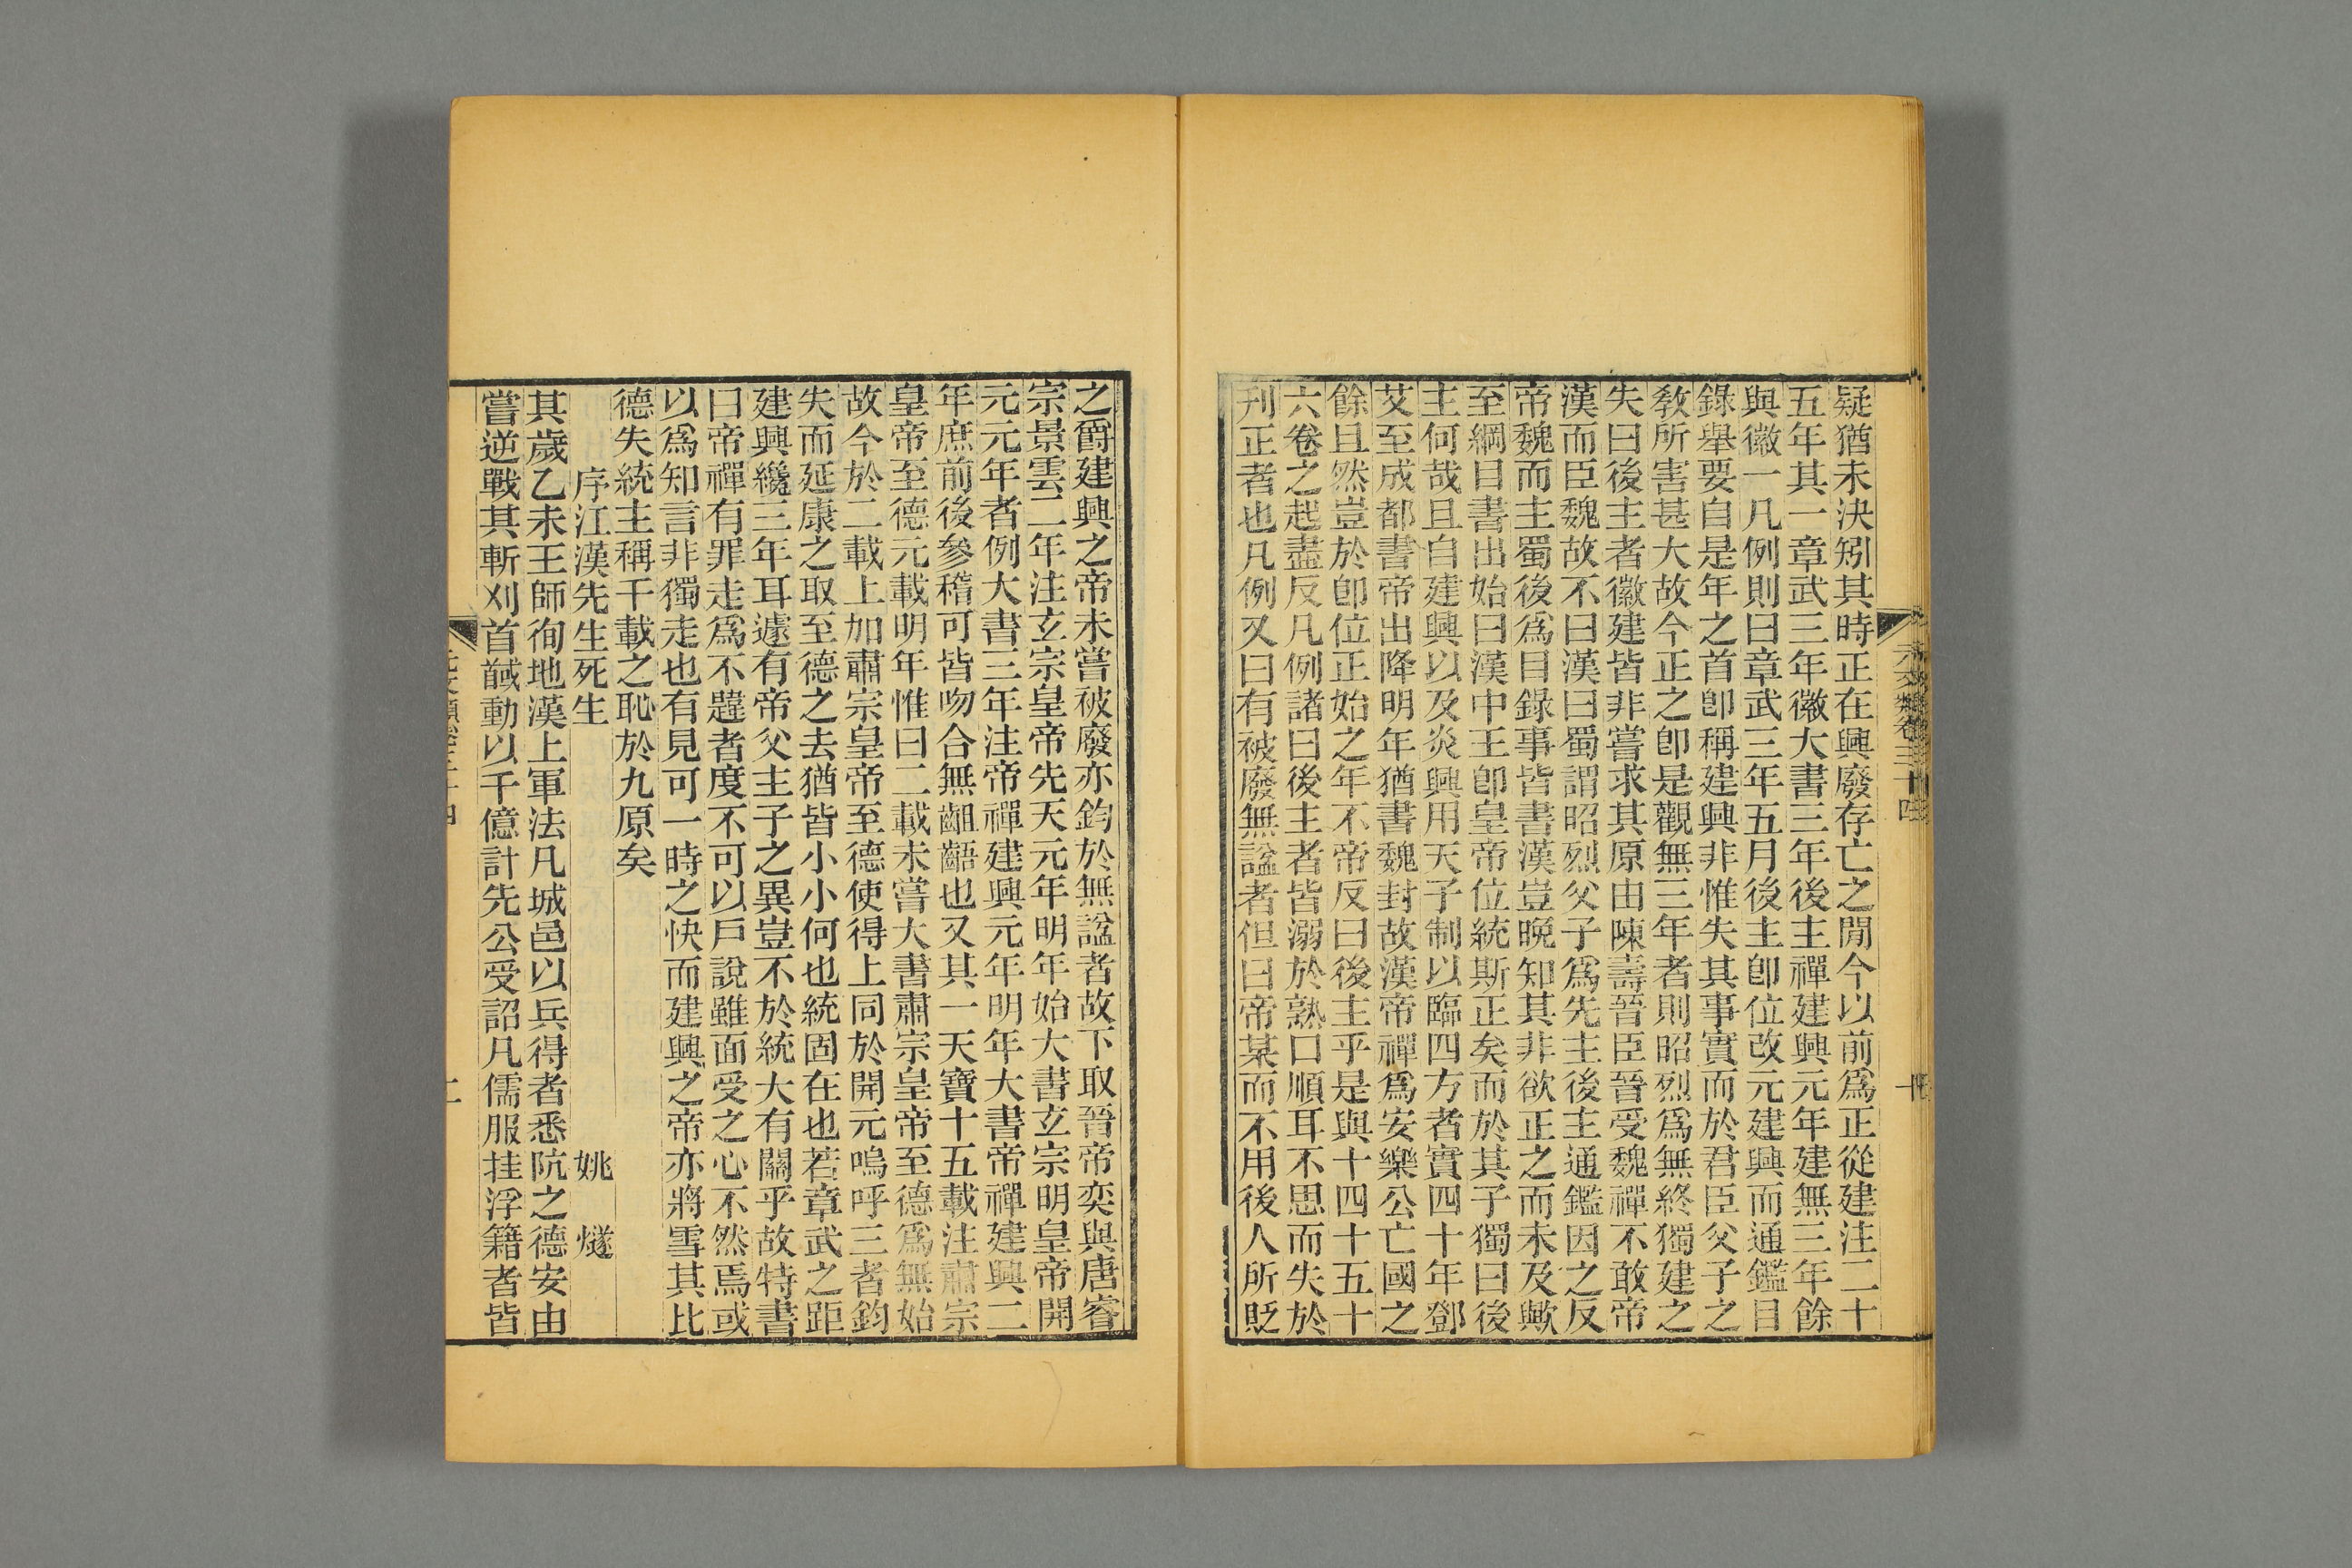 疑猶未決矧其時正在興廢存亡之閒今以前爲正從建注二十
五年其一章武三年徽大書三年後主禪建興元年建無三年餘
與徽一凡例則曰章武三年五月後主卽位改元建興而通鑑目
錄舉要自是年之首卽稱建興非惟失其事實而於君臣父子之
敎所害甚大故今正之卽是觀無三年者則昭烈爲無終獨建之
失曰後主者徽建皆非嘗求其原由陳壽晉臣晉受魏禪不敢帝
漢而臣魏故不曰漢曰蜀謂昭烈父子爲先主後主通鑑因之反
帝魏而主蜀後爲目錄事皆書漢豈晚知其非欲正之而未及歟
至綱目書出始曰漢中王卽皇帝位統斯正矣而於其子獨曰後
主何哉且自建興以及炎興用天子制以臨四方者實四十年鄧
艾至成都書帝出降明年猶書魏封故漢帝禪爲安樂公亡國之
餘且然豈於卽位正始之年不帝反曰後主乎是與十四十五十
六卷之起盡反凡例諸曰後主者皆溺於熟口順耳不思而失於
刊正者也凡例又曰有被廢無諡者但曰帝某而不用後人所貶
元文類卷三十四
十
之爵建興之帝未嘗被廢亦鈞於無諡者故下取晉帝奕與唐睿
宗景雲二年注玄宗皇帝先天元年明年始大書玄宗明皇帝開
元元年者例大書三年注帝禪建興元年明年大書帝禪建興二
年庶前後參稽可皆吻合無齟齬也又其一天寶十五載注肅宗
皇帝至德元載明年惟曰二載未嘗大書肅宗皇帝至德爲無始
故今於二載上加肅宗皇帝至德使得上同於開元嗚呼三者鈞
失而延康之取至德之去猶皆小小何也統固在也若章武之距
建興纔三年耳遽有帝父主子之異豈不於統大有關乎故特書
曰帝禪有罪走爲不韙者度不可以戶說雖面受之心不然焉或
以爲知言非獨走也有見可一時之快而建興之帝亦將雪其比
德失統主稱千載之恥於九原矣
序江漢先生死生　姚　燧
其歲乙未王師徇地漢上軍法凡城邑以兵得者悉阬之德安由
嘗逆戰其斬刈首馘動以千億計先公受詔凡儒服挂浮籍者皆